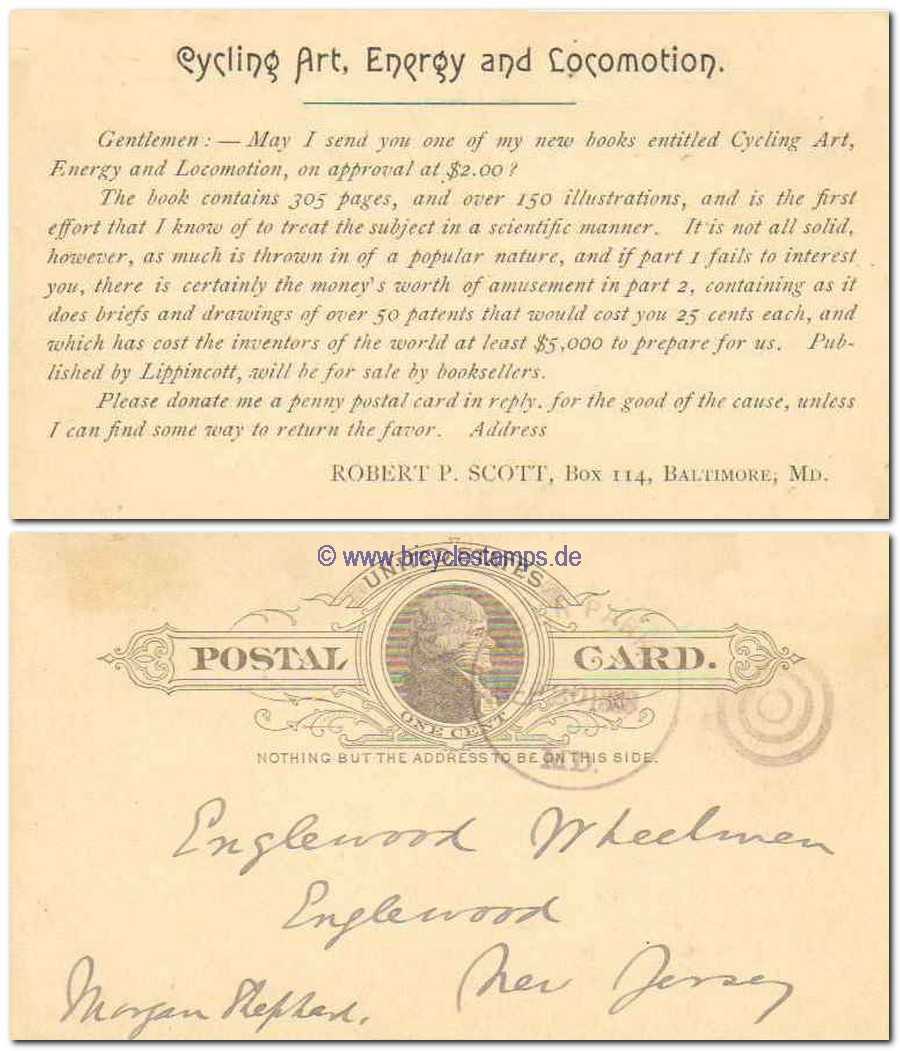 Cycling Art, Energy and Locomotion.
Gentlemen: — May I send you one of my new books entitled Cycling Art,
Energy and Locomotion, on approval at $2.00?
The book contains 305 pages, and over 150 illustrations, and is the first
effort that I know of to treat the subject in a scientific manner. It is not all solid,
however, as much is thrown in of a popular nature, and if part 1 fails to interest
you, there is certainly the money's worth of amusement in part 2, containing as it
does briefs and drawings of over 50 patents that would cost you 25 cents each, and
which has cost the inventors of the world at least $5,000 to prepare for us. Pub-
lished by Lippincott, will be for sale by booksellers.
Please donate me a penny postal card in reply, for the good of the cause, unless
I can find some way to return the favor. Address
ROBERT P. SCOTT, Box 114, Baltimore, Md.
© www.bicyclestamps.de
UNITED STATES
POSTAL CARD.
ONE CENT
NOTHING BUT THE ADDRESS TO BE ON THIS SIDE.
MD.
Englewood Wheelmen
Englewood
New Jersey
Morgan Shephard.